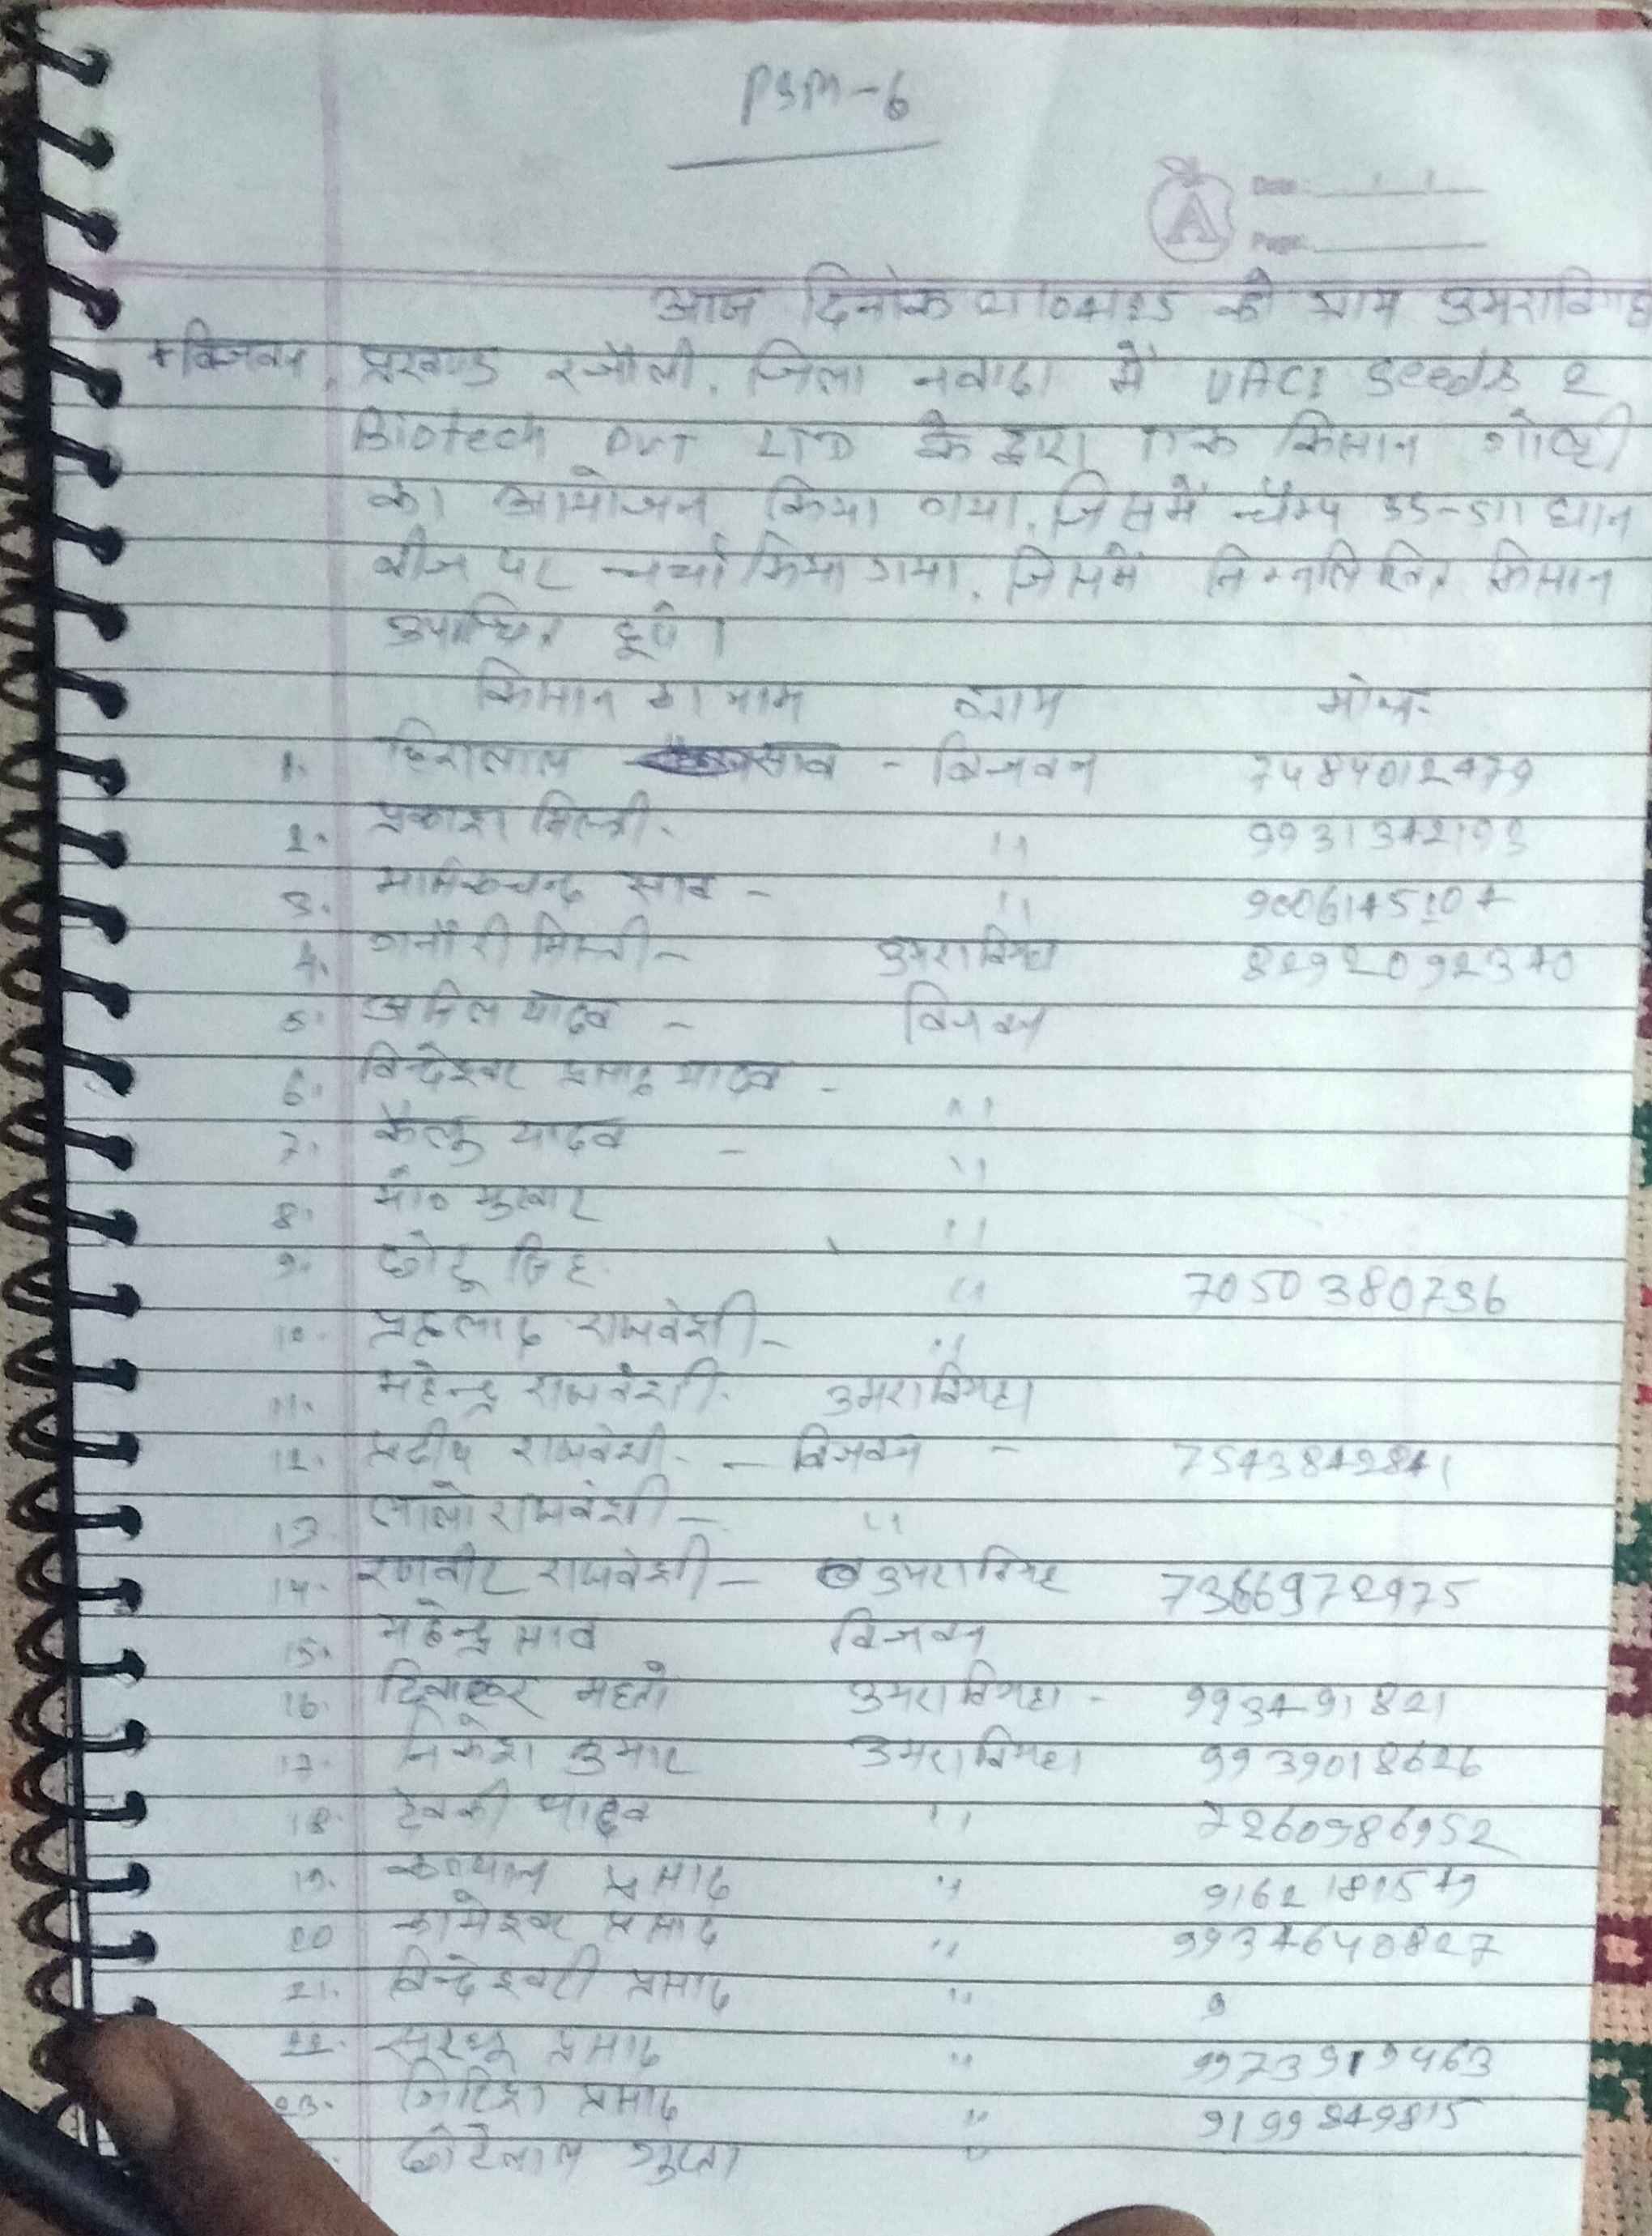 PSM-6
Date:
Page:
आज दिनांक 21/04/25 को ग्राम उमराबिगहा
+ बिजवन, प्रखण्ड रजौली, जिला नवादा में VACI Seeds &
Biotech PVT LTD के द्वारा एक किसान गोष्ठी
का आयोजन किया गया, जिसमें चैम्प 55-511 धान
बीज पर चर्चा किया गया, जिसमें निम्नलिखित किसान
उपस्थित हुये।
किसान का नाम ग्राम मोब.
1. हिरालाल साव - बिजवन 7484012479
2. प्रकाश मिस्त्री. " 9931342193
3. मानिकचन्द साव - " 9006145104
4. गनौरी मिस्त्री - उमराबिगहा 8292092340
5. अनिल यादव - बिजवन
6. बिन्देश्वर प्रसाद यादव - "
7. कैलु यादव - "
8. मो० मुख्तार "
9. छोटू सिंह. " 7050380736
10. प्रहलाद राजवंशी - "
11. महेन्द्र राजवंशी. उमराबिगहा
12. प्रदीप राजवंशी. - बिजवन - 7543842841
13. लालो राजवंशी - "
14. रणवीर राजवंशी - उमराबिगह 7366972975
15. महेन्द्र साव बिजवन
16. दिवाकर महतो उमराबिगहा - 993491821
17. निकेश कुमार उमराबिगहा 9939018626
18. देवकी यादव " 7260986952
19. प्रसाद " 9162181549
20 कामेश्वर प्रसाद " 9934640827
21. बिन्देश्वरी प्रसाद " 9
22. सरयू प्रसाद " 9973919463
23. गिरिश प्रसाद " 9199849815
छोटेलाल गुप्ता "